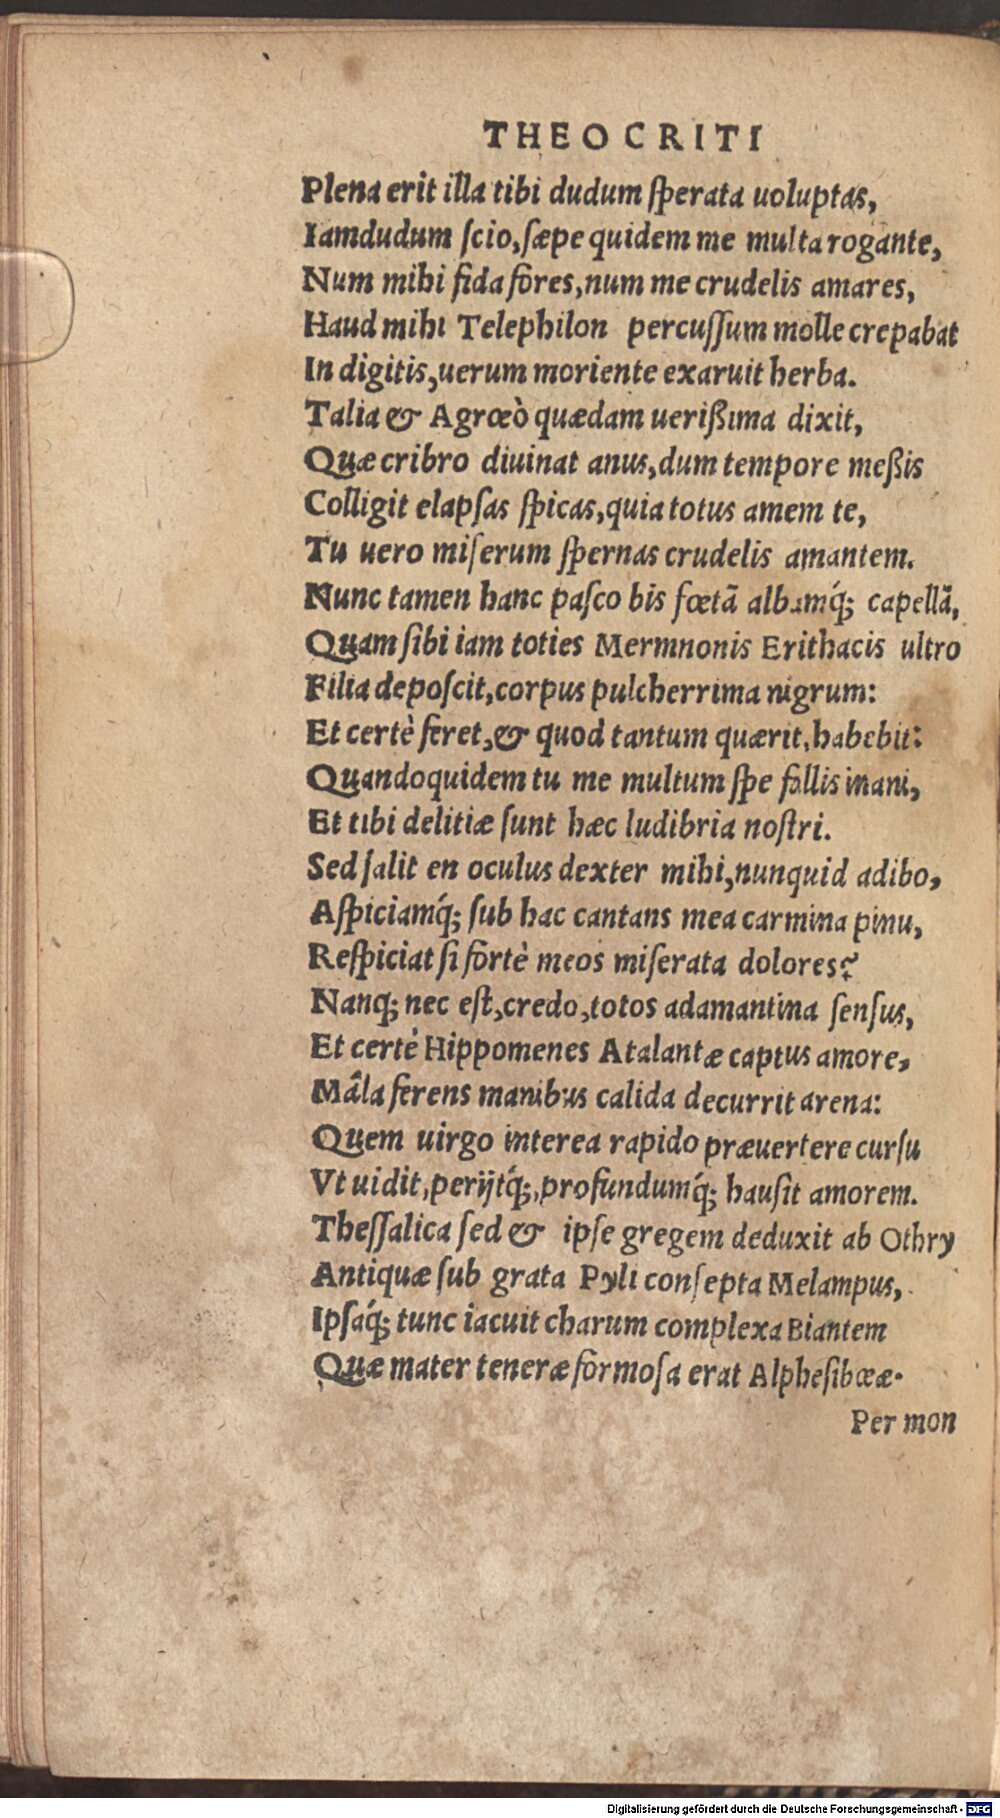 THEOCRITI
Plena erit illa tibi dudum ſperata uoluptas,
Iamdudum ſcio, ſæpe quidem me multa rogante,
Num mihi fida fores, num me crudelis amares,
Haud mihi Telephilon percuſſum molle crepabat
In digitis, uerum moriente exaruit herba.
Talia & Agrœò quædam uerißima dixit,
Quæ cribro diuinat anus, dum tempore meßis
Colligit elapſas ſpicas, quia totus amem te,
Tu uero miſerum ſpernas crudelis amantem.
Nunc tamen hanc paſco bis fœtã albamq́; capellã,
Quam ſibi iam toties Mermnonis Erithacis ultro
Filia depoſcit, corpus pulcherrima nigrum:
Et certè feret, & quod tantum quærit, habebit:
Quandoquidem tu me multum ſpe fallis inani,
Et tibi delitiæ ſunt hæc ludibria noſtri.
Sed ſalit en oculus dexter mihi, nunquid adibo,
Aſpiciamq́; ſub hac cantans mea carmina pinu,
Reſpiciat ſi fortè meos miſerata dolores?
Nanq; nec eſt, credo, totos adamantina ſenſus,
Et certè Hippomenes Atalantæ captus amore,
Mâla ferens manibus calida decurrit arena:
Quem uirgo interea rapido præuertere curſu
Vt uidit, perijtq́;, profundumq́; hauſit amorem.
Theſſalica ſed & ipſe gregem deduxit ab Othry
Antiquæ ſub grata Pyli conſepta Melampus,
Ipſaq́; tunc iacuit charum complexa Biantem
Quæ mater teneræ formoſa erat Alphesibœæ.
Per mon
Digitalisierung gefördert durch die Deutsche Forschungsgemeinschaft - DFG